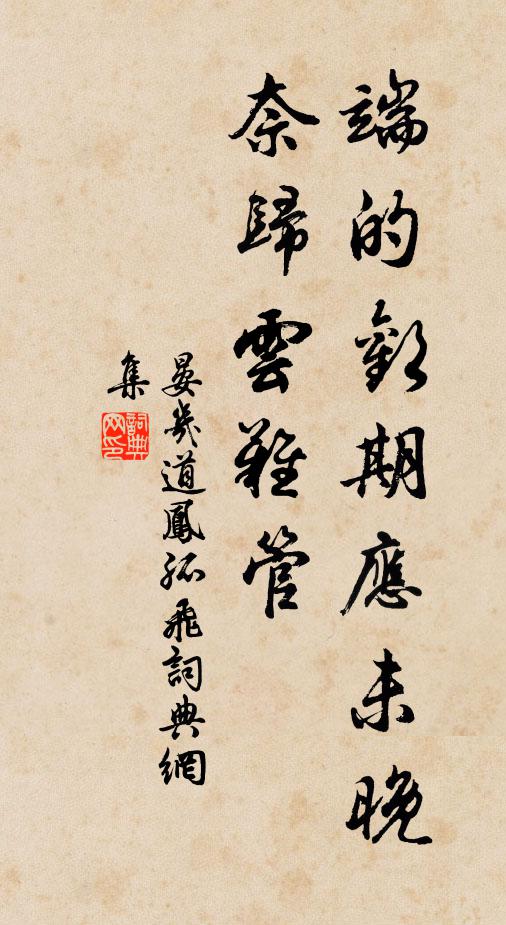 端的歡期應未晚
奈歸雲難管
晏幾道鳳孤飛詞典網
集
詞典
网印